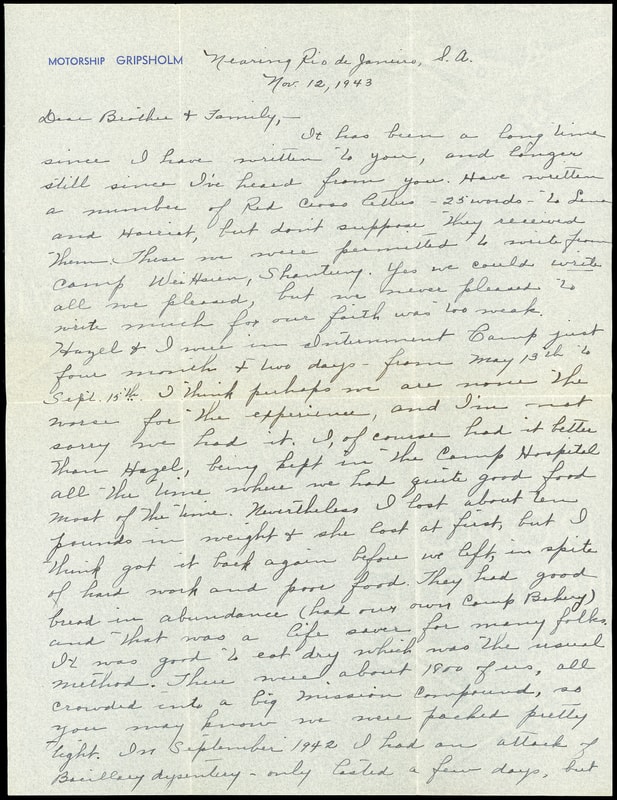 MOTORSHIP GRIPSHOLM Nearing Rio de Janeiro, S.A.
Nov. 12, 1943
Dear Brother & Family,—
It has been a long time
since I have written to you, and longer
still since I've heard from you. Have written
a number of Red Cross letters - 25 words - to Lena
and Harriet, but don't suppose they received
them. These we were permitted to write from
Camp Wei Hsien, Shantung. Yes we could write
all we pleased, but we never pleased to
write much for our faith was too weak.
Hazel & I were in Internment Camp just
four month & two days - from May 13th to
Sept. 15th. I think perhaps we are none the
worse for the experience, and I'm not
sorry we had it. I, of course had it better
than Hazel, being kept in the Camp Hospital
all the time where we had quite good food
most of the time. Nevertheless I lost about ten
pounds in weight & she lost at first, but I
think got it back again before we left, in spite
of hard work and poor food. They had good
bread in abundance (had our own Camp Bakery)
and that was a life saver for many folks.
It was good to eat dry which was the usual
method. There were about 1800 of us, all
crowded into a big Mission Compound, so
you may know we were packed pretty
tight. In September 1942 I had an attack of
Bacillary dysentery - only lasted a few days, but